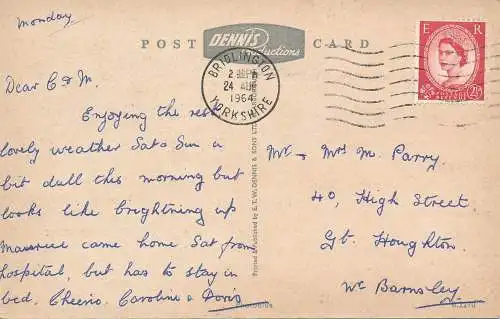 Monday
POST CARD
DENNIS
Productions
E R
2½D
BRIDLINGTON
24 AUG
1964
YORKSHIRE
Dear C & M.
Enjoying the rest
lovely weather Sat & Sun a
bit dull this morning but
looks like brightning up
Maurice came home Sat from
hospital, but has to stay in
bed. Cheerio. Caroline & Doris
Mr - Mrs M. Parry.
40, High Street.
Gt. Houghton.
Nr Barnsley.
Printed & Published by E. T. W. DENNIS & SONS LTD